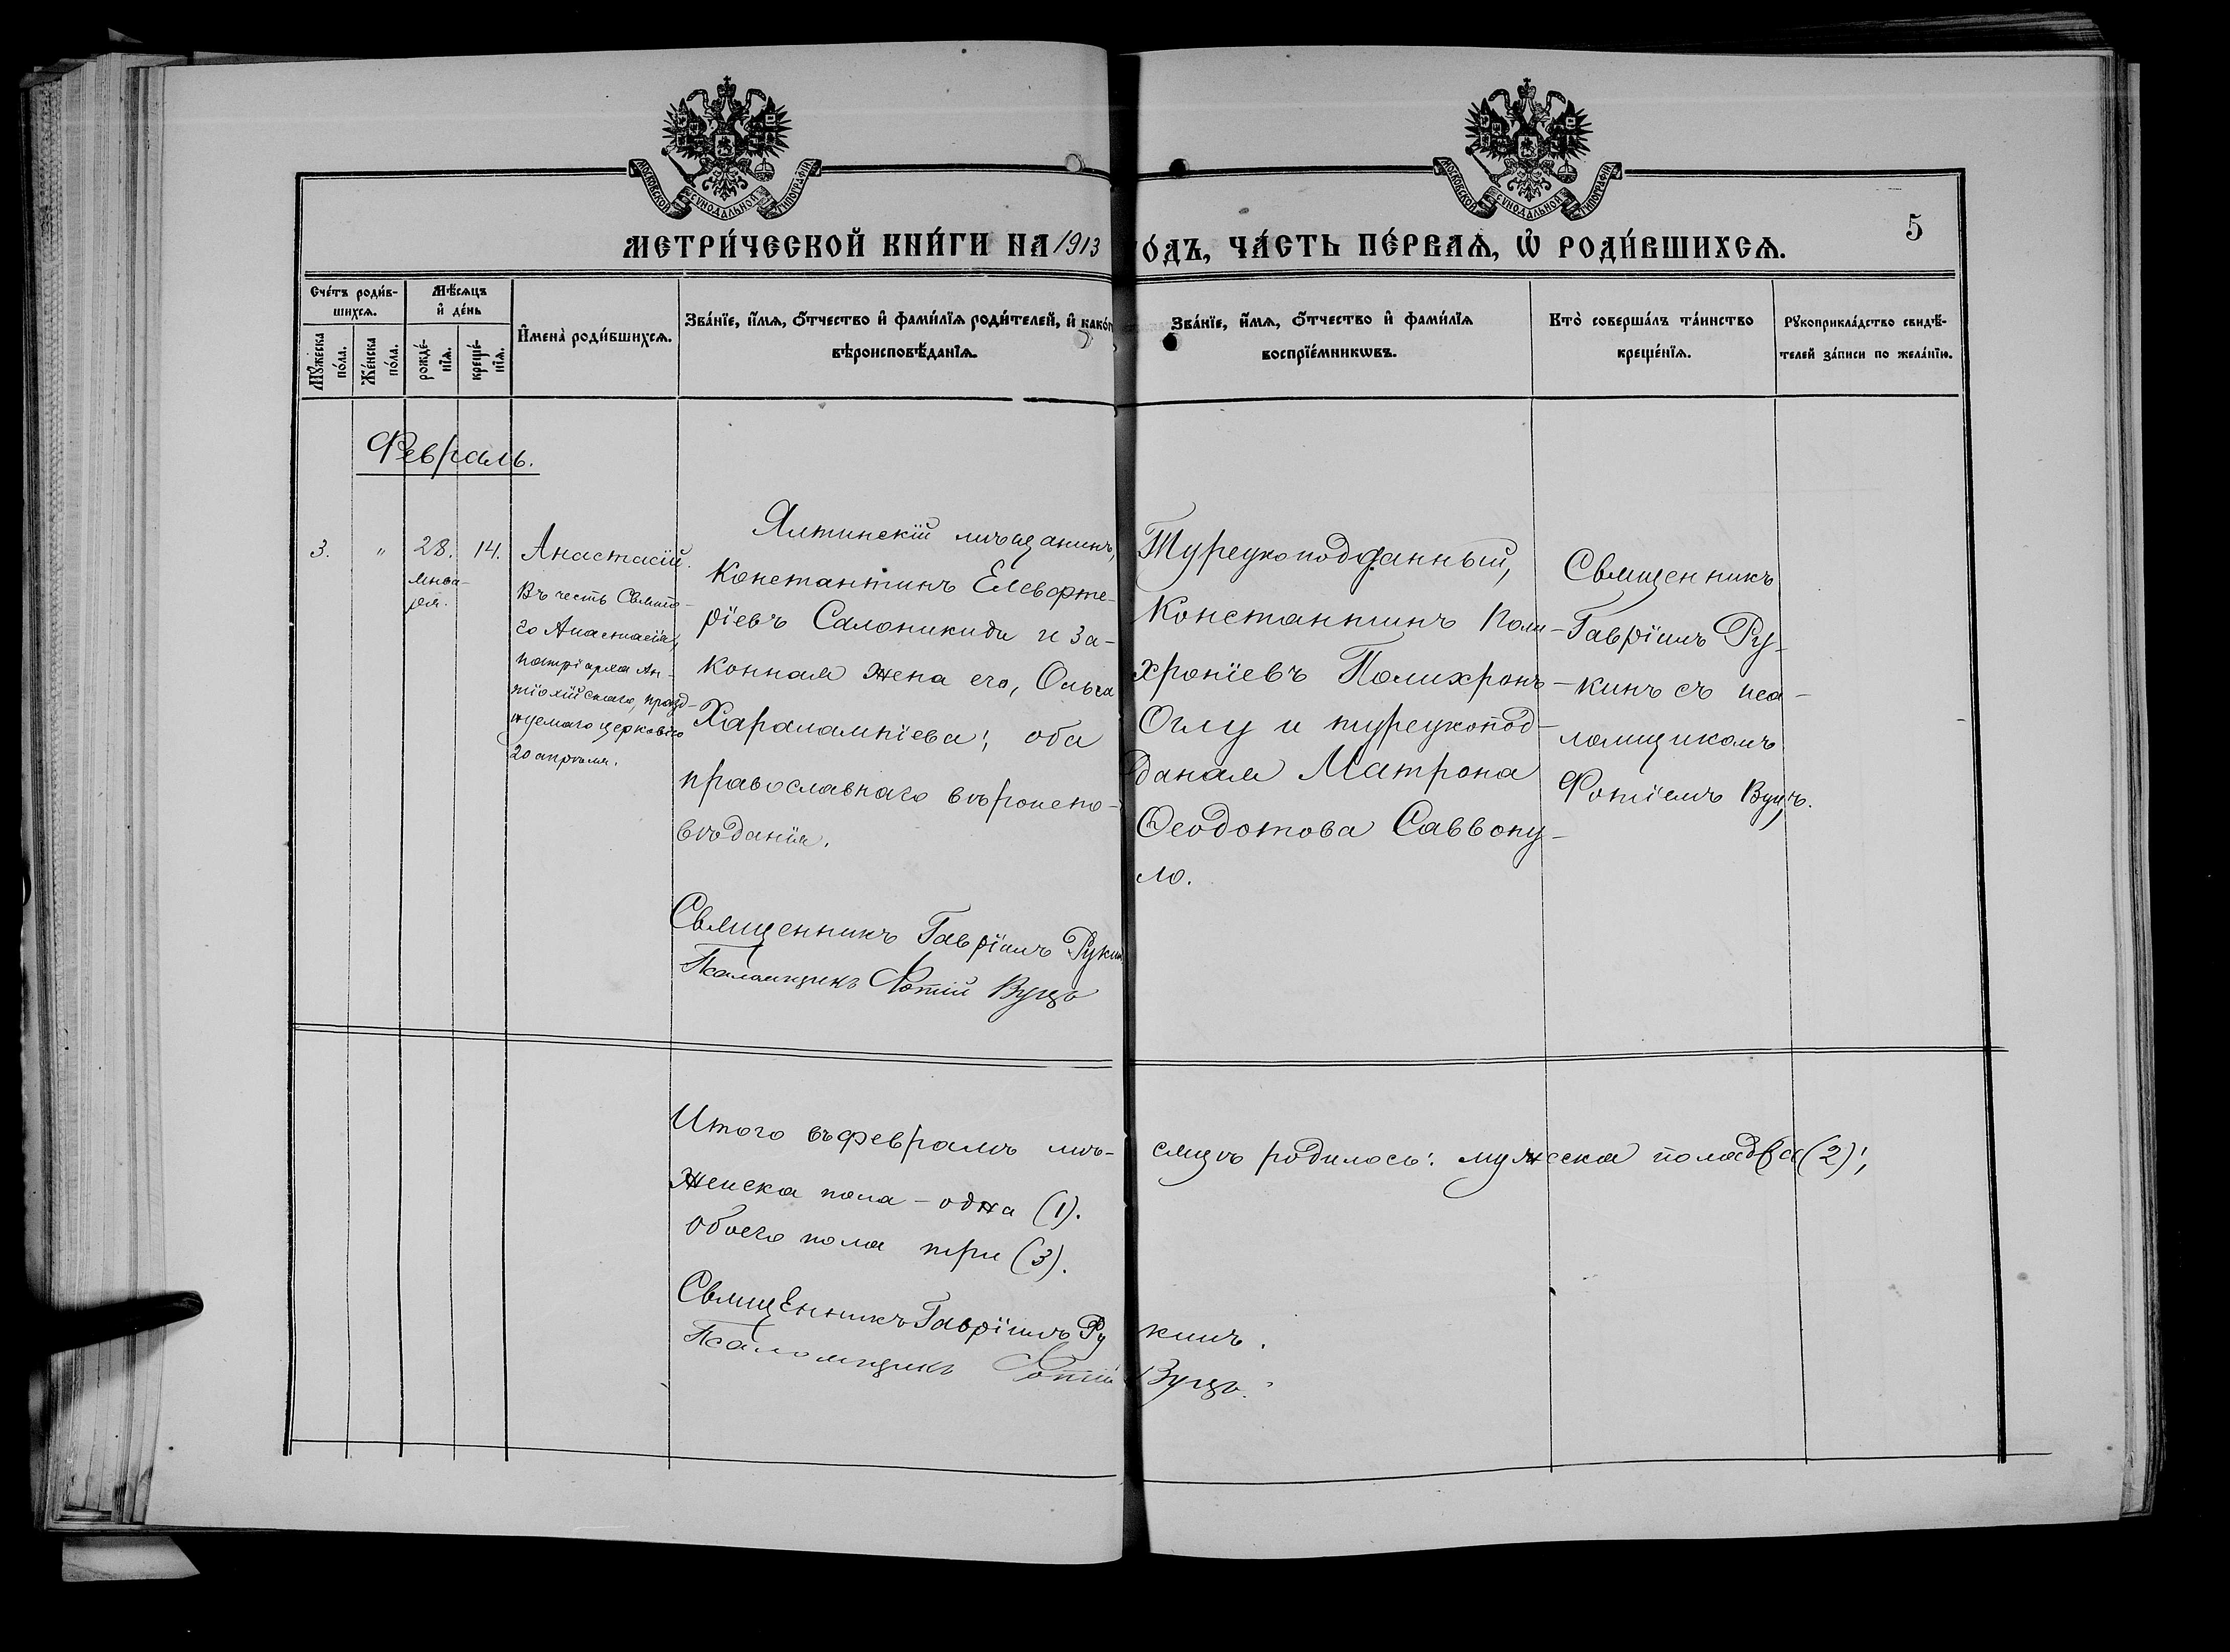 МОСКОВСКОЙ СУНОДАЛЬНОЙ ТИПОГРАФІИ
МОСКОВСКОЙ СУНОДАЛЬНОЙ ТИПОГРАФІИ
5
МЕТРИ́ЧЕСКОЙ КНИ́ГИ НА 1913 ГО́ДЪ, ЧА́СТЬ ПЕ́РВАѦ, Ѡ҆ РОДИ́ВШИХСѦ.
Сче́тъ роди́в-
шихсѧ.
Мꙋ́жеска
по́ла.
Же́нска
по́ла.
Мѣ́сѧцъ
и҆ де́нь
рожде́-
нїѧ.
креще́-
нїѧ.
И҆мена̀ роди́вшихсѧ.
Зва́нїе, и҆́мѧ, ѻ҆́тчество и҆ фами́лїѧ роди́телей, и҆ како́г
вѣроисповѣ́данїѧ.
Зва́нїе, и҆́мѧ, ѻ҆́тчество и҆ фами́лїѧ
воспрїе́мникѡвъ.
Кто̀ соверша́лъ та́инство
креще́нїѧ.
Рꙋкоприкла́дство свидѣ́-
телей за́писи по жела́нїю.
Февраль.
3.
"
28.
Янва-
ря.
14.
Анастасій.
Въ честь Свято-
го Анастасія,
патріарха Ан-
тіохійскаго, празд-
нуемаго церковію
20 апрѣля.
Ялтинскій мѣщанинъ,
Константинъ Елевфте-
ріевъ Салоникиди и за-
конная жена его, Ольга
Харалампіева; оба
православнаго вѣроиспо-
вѣданія.
Священникъ Гавріилъ Рукин
Псаломщикъ Фотій Вуцъ
Турецкоподданный,
Константинъ Поли-
хроніевъ Полихронъ-
Оглу и турецкопод-
даная Матрона
Ѳеодотова Саввопу-
ло.
Священникъ
Гавріилъ Ру-
кинъ съ пса-
ломщикомъ
Фотіемъ Вуцъ.
Итого въ февралѣ мѣ-сяцѣ родилось: мужеска пола два (2);
Женска пола - одна (1).
Обоего пола три (3).
Священникъ Гавріилъ Рукинъ.
Псаломщикъ Фотій Вуцъ.